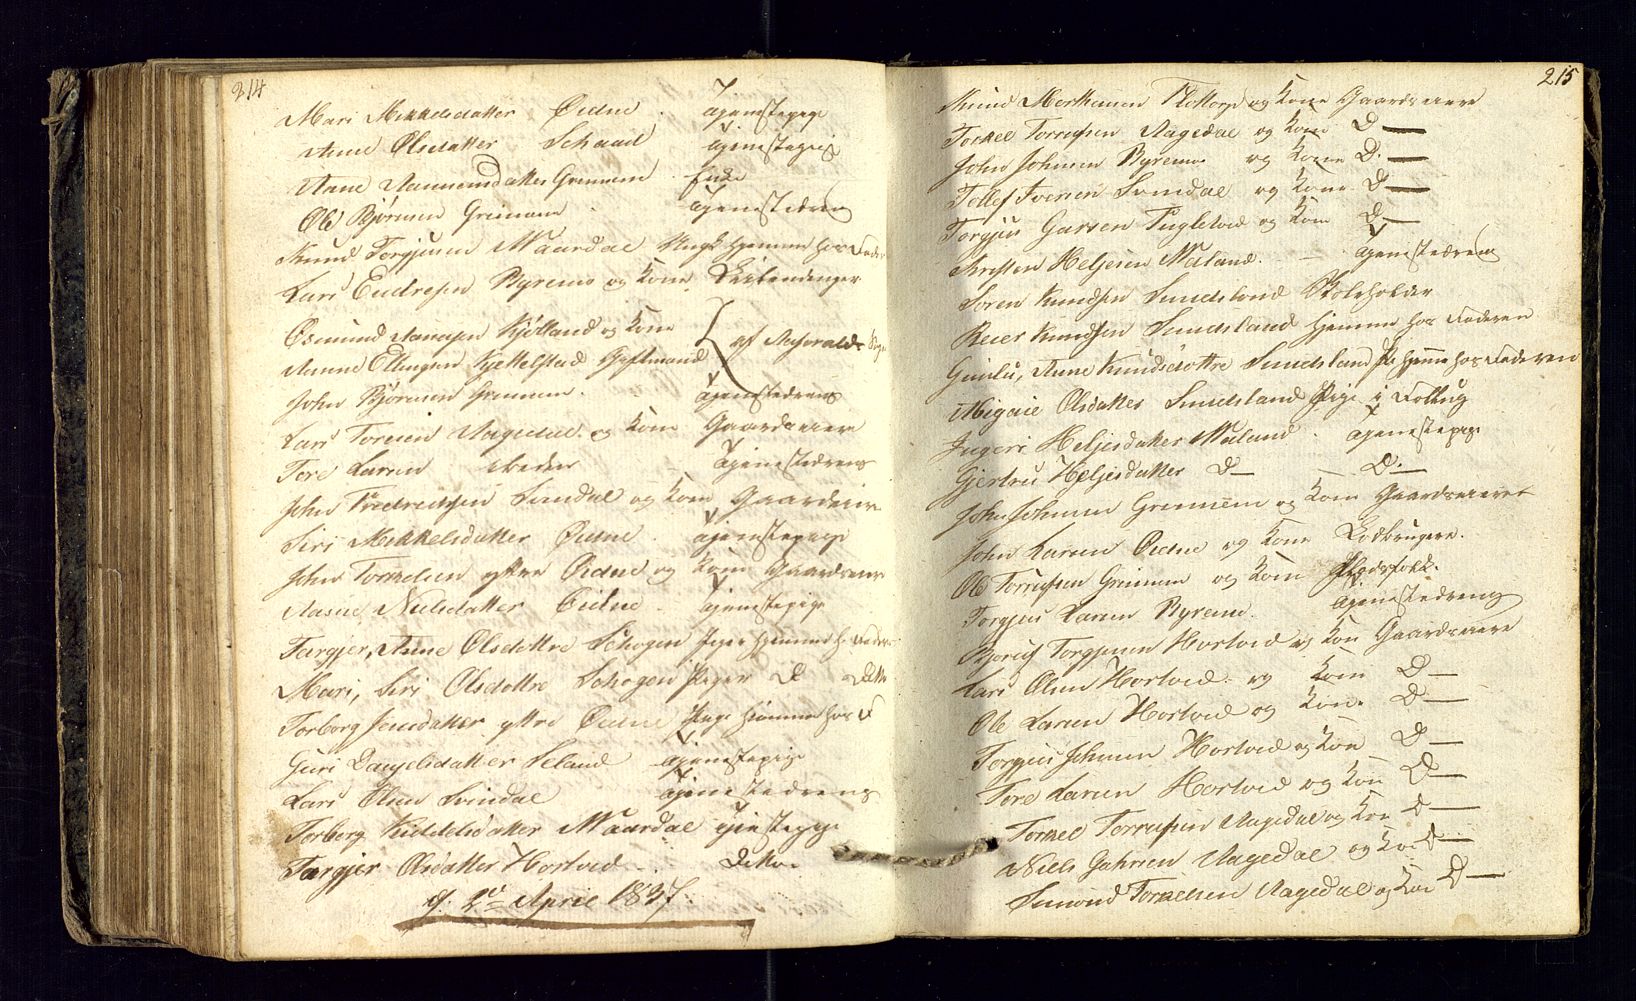 214
Mari Mikkelsdatter Øidne. Tjenestepige
Anne Olsdatter Schaael Tjenestepige
Anne Aanensdatter Grennem. Enke
Ole Bjørnsen Grennem. Tjenestedreng
Knud Torgjusen Maardal Ungk hjemme hos Fader
Lars Endresen Byremo og Kone
Osmund Aanesen Kjølland og Kone
Anne Ellingsen Kjettelstad Gjeftmand af Aaseralds Sogn
John Bjørnsen Grennem. Tjenestedreng
Lars Toresen Aagedal og Kone Gaardmænd
Tore Larsen Tjenestedreng
John Fredriksen Svindal og Kone Gaard
Siri Mikkelsdatter Øidne. Tjenestepige
John Torkelsen ytre Øidne og Kone Gaard
Aasne Nilsdatter Øidne. Tjenestepige
Targjer, Anne Olsdøttre Schogen Piger hjemme h Fader
Mari, Siri Olsdøttre Schogen Piger D Ditto
Torborg Jensdatter ytre Øidne Pige hjemme hos F
Guri Danjelsdatter Seland Tjenestepige
Lars Olsen Svindal Tjenestedreng
Torborg Kiddelsdatter Maardal Tjenstepige
Targjer Olsdatter Hortved. Ditto
d: 2den April 1837.
215
Knud Morthensen Flottorp og Kone Gaardmænd
Torkel Torrufsen Aagedal og Kone D —
John Johnsen Byremo og Kone D. —
Tollef Iversen Svindal og Kone D —
Torgjus Garsen Fuglevei og Kone D —
Kristen Heljesen Møland. — Tjenestedreng
Soren Knudsen Smedsland Skoleholder
Reier Knudsen Smedsland hjemme hos Faderen
Gunlu, Anne Knudsdøttre Smedsland Pi hjemme hos Faderen
Abigaie Olsdatter Smedsland Pige i Follug
Ingeri Heljesdatter Møland. Tjenestepige
Gjertru Heljesdatter D— — D. —
John Johnsen Grennem og Kone Gaard
John Larsen Øidne og Kone Lodbrugere.
Ole Torrufsen Grennem og Kone Pladsfolk.
Torgjus Larsen Byremo. Tjenestedreng
Bjoruf Torgjusen Hortved og Kone Gaardmænd
Lars Olsen Hortved og Kone D —
Ole Larsen Hortved og Kone D —
Torgjus Johnsen Hortved og Kone D —
Tore Larsen Hortved og Kone D —
Torkel Torrufsen Aagedal og Kone D —
Niels Gahrsen Aagedal og Ko D —
Simond Torkelsen Aagedal og Kone D —